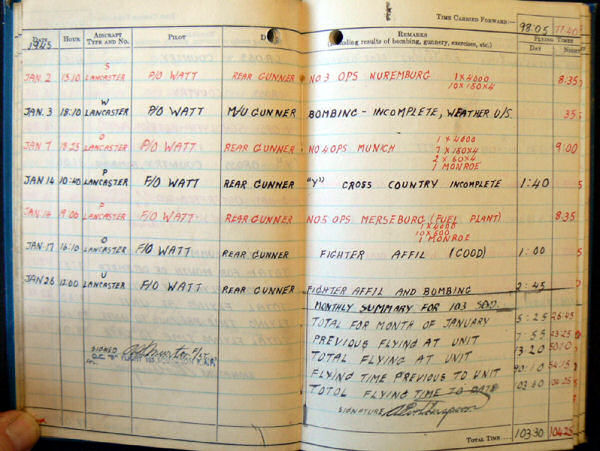 TIME CARRIED FORWARD:— 98.05 77.40
DATE HOUR AIRCRAFT TYPE AND NO. PILOT REMARKS FLYING TIMES
1945 (including results of bombing, gunnery, exercises, etc.) DAY NIGHT
JAN. 2 15.10 S LANCASTER P/O WATT REAR GUNNER NO 3 OPS NUREMBURG 1X4000 8.35
10X150X4
JAN. 3 18.10 W LANCASTER P/O WATT M/U GUNNER BOMBING - INCOMPLETE, WEATHER U/S 35
JAN 7 18.25 O LANCASTER P/O WATT REAR GUNNER NO 4 OPS MUNICH 1 X 4000 9.00
7 X 150X4
2 X 60X4
1 MONROE
JAN 14 10.40 P LANCASTER F/O WATT REAR GUNNER "Y" CROSS COUNTRY INCOMPLETE 1:40
JAN. 14 19.00 P LANCASTER F/O WATT REAR GUNNER NO 5 OPS MERSEBURG (FUEL PLANT) 8.35
1X4000
10X500
1 MONROE
JAN. 17 16.10 O LANCASTER F/O WATT REAR GUNNER FIGHTER AFFIL (GOOD) 1:00
JAN 28 12.00 U LANCASTER F/O WATT REAR GUNNER FIGHTER AFFIL AND BOMBING 2:45
MONTHLY SUMMARY FOR 103 SQD.
TOTAL FOR MONTH OF JANUARY 5:25 26:45
PREVIOUS FLYING AT UNIT 7:55 23:25
TOTAL FLYING AT UNIT 13.20 50:10
FLYING TIME PREVIOUS TO UNIT 90:10 54:15
TOTAL FLYING TIME TO DATE 103.30 104:25
SIGNED
O.C. FLIGHT 103 SQUADRON
SIGNATURE
TOTAL TIME.... 103.30 104.25